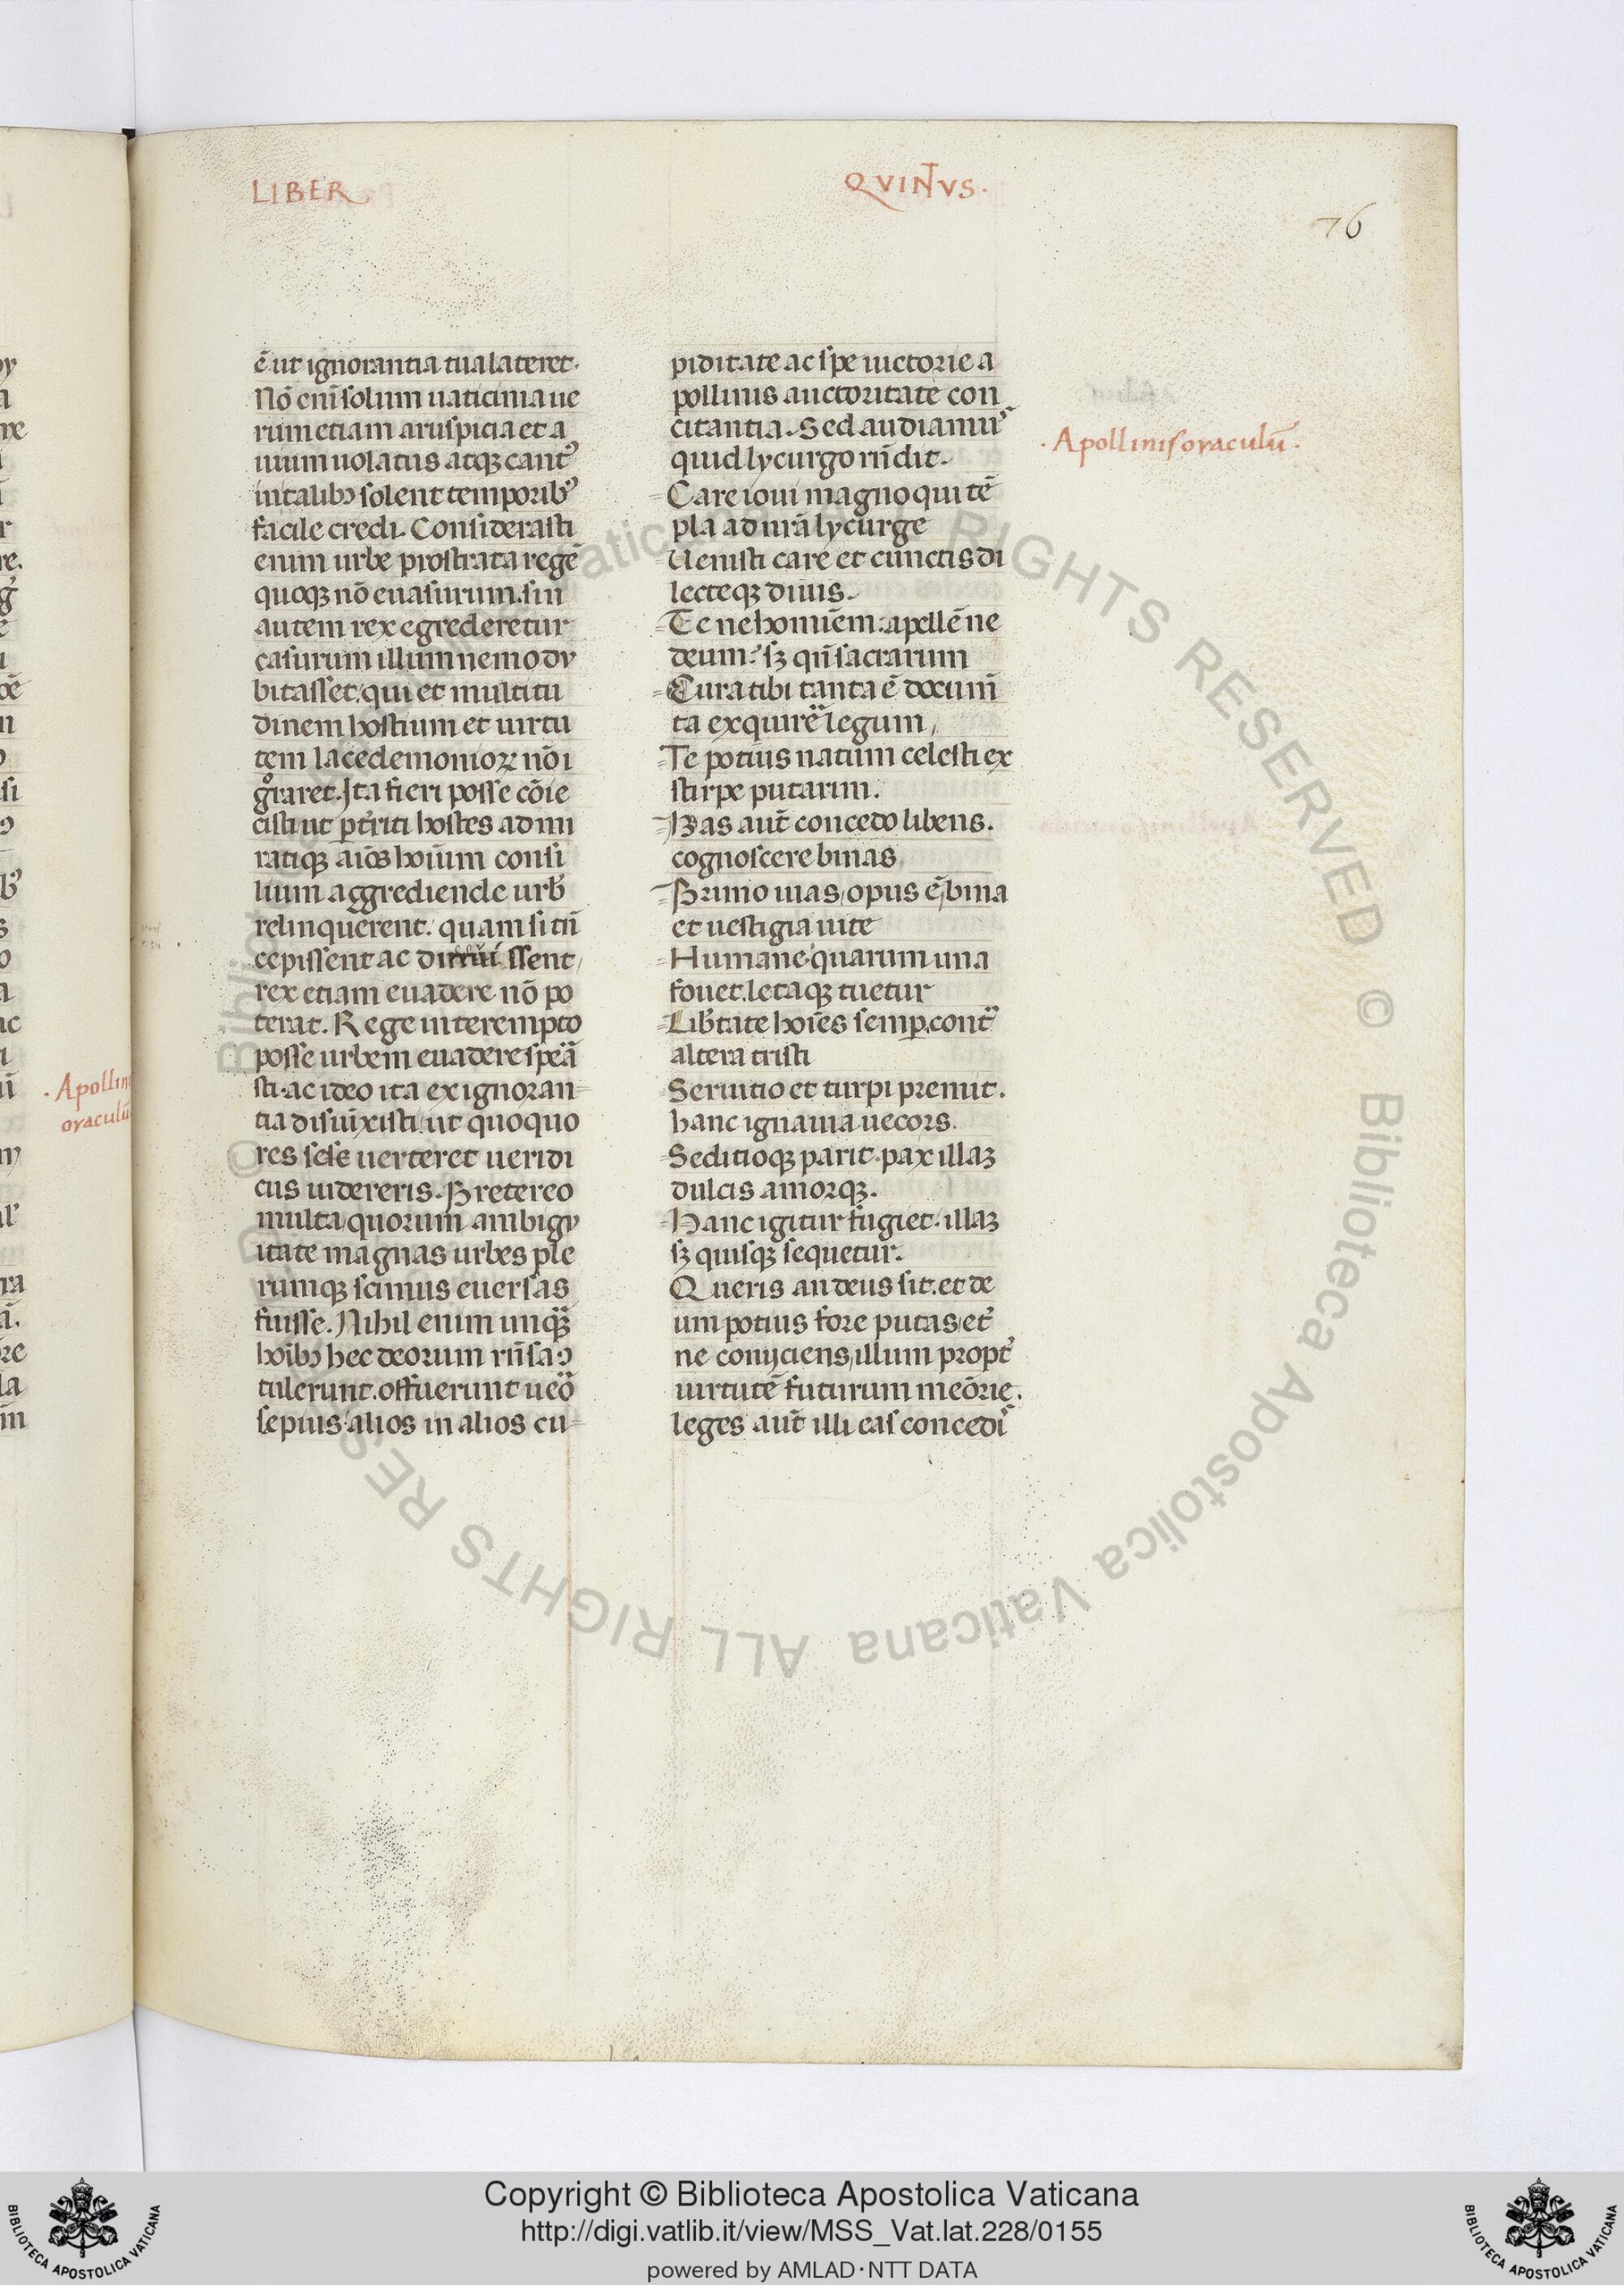 LIBER
QVINTVS.
76
ē ut ignorantia tua lateret.
Nō enī solum uaticinia ue
rum etiam aruspicia et a
uium uolatus atqꝫ cantꝰ
in talibꝫ solent temporibꝰ
facile credi. Considerasti
enim urbe prostrata regē
quoqꝫ nō euasurum. sin
autem rex egrederetur
casurum illum nemo du
bitasset. qui et multitu
dinem hostium et uirtu
tem lacedemonioꝝ nō i
gͦraret. Ita fieri posse cōie
cisti ut pt̄riti hostes admi
ratiqꝫ aīos hoīum consi
lium aggrediende urb̄
relinquerent. quam si tn̄
cepissent ac diruissent,
rex etiam euadere nō po
terat. Rege interempto
posse urbem euadere speā
sti. ac ideo ita ex ignoran
tia disiūxisti, ut quoquo
res sese uerteret ueridi
cus uidereris. Pretereo
multa, quorum ambigu
itate magnas urbes ple
rumqꝫ scimus euersas
fuisse. Nihil enim unqꝫ̄
hoībꝫ hec deorum rn̄sa ꝯ
tulerunt. offuerunt ueō
sepius. alios in alios cu
piditate ac spe uictorie a
pollinis auctoritate con
citantia. Sed audiamuˢ
quid lycurgo rn̄dit.
Care ioui magno qui tē
pla ad nr̄a lycurge
Uenisti care et cunctis di
lecteqꝫ diuis.
Te ne hominēm: apellē ne
deum? sꝫ qn̄ sacrarum
Cura tibi tanta ē docum̄
ta exquirē legum,
Te potius natum celesti ex
stirpe putarim.
Has aut̄ concedo libens.
cognoscere binas
Primo uias, opus ē, bina
et uestigia uite
Humane. quarum una
fouet. letaqꝫ tuetur
Lib̄tate hoīes semꝑ. cont̄
altera tristi
Seruitio et turpi premit.
hanc ignauia uecors.
Seditioqꝫ parit. pax illaꝫ
dulcis amorqꝫ.
Hanc igitur fugiet. illaꝫ
sꝫ quisqꝫ sequetur.
Queris an deus sit. et de
um potius fore putas, et̄
ne conijciens, illum propt̄
uirtutē futurum meōrie.
leges aut̄ illi eas concediˢ
.Apollinis oraculū.
.Apollin
oraculū
Copyright © Biblioteca Apostolica Vaticana
http://digi.vatlib.it/view/MSS_Vat.lat.228/0155
powered by AMLAD·NTT DATA
BIBLIOTECA APOSTOLICA VATICANA
BIBLIOTECA APOSTOLICA VATICANA
© Biblioteca Apostolica Vaticana ALL RIGHTS RESERVED © Biblioteca Apostolica Vaticana ALL RIGHTS RESERVED